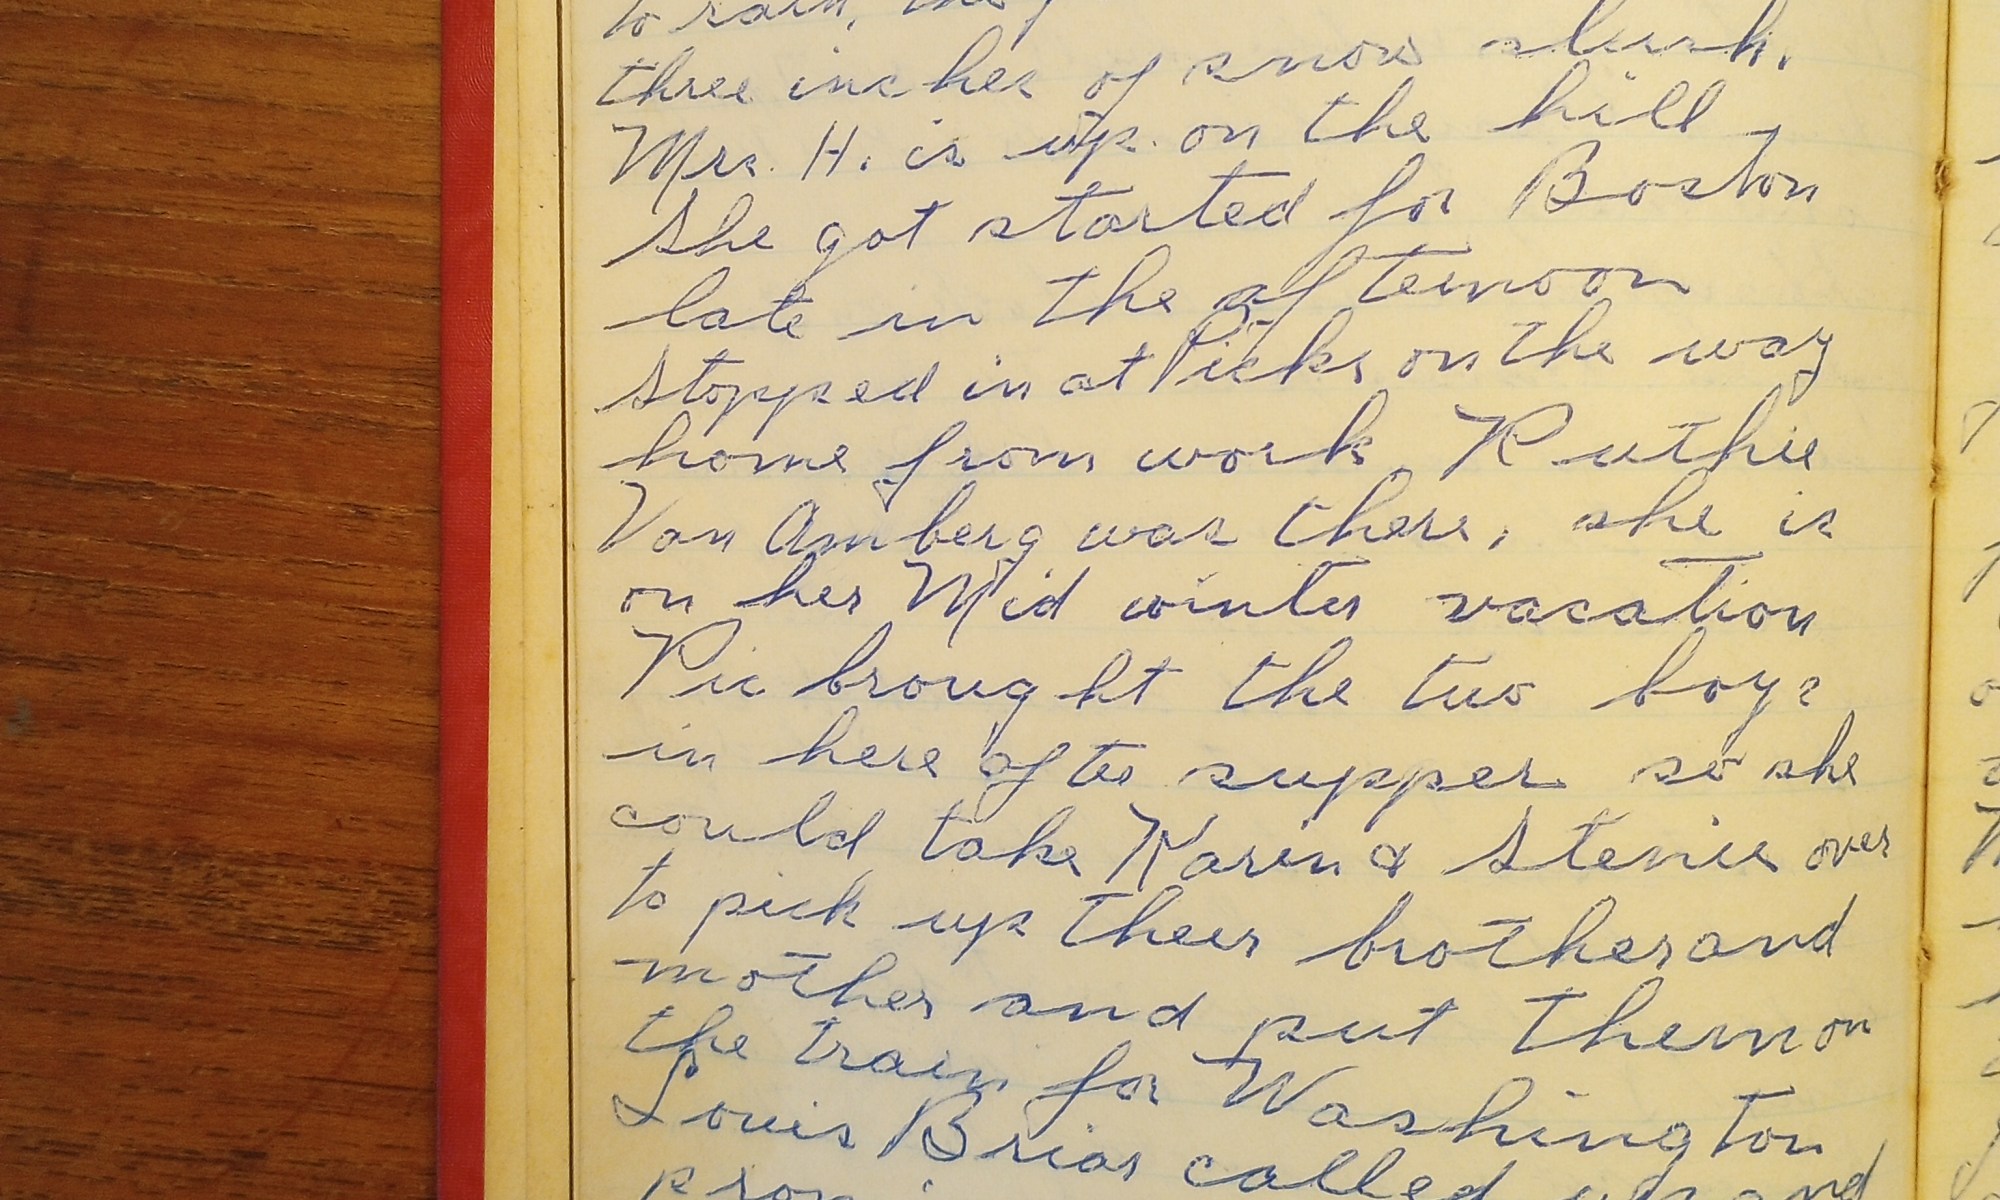 to rain, the
three inches of snow slush.
Mrs. H. is up on the hill
She got started for Boston
late in the afternoon
stopped in at Picks on the way
home from work, Ruthie
Van Amberg was there, she is
on her Mid winter vacation
Pic brought the two boys
in here after supper so she
could take Karen & Stevie over
to pick up their brother and
mother and put them on
the train for Washington
Louis Briar called up and